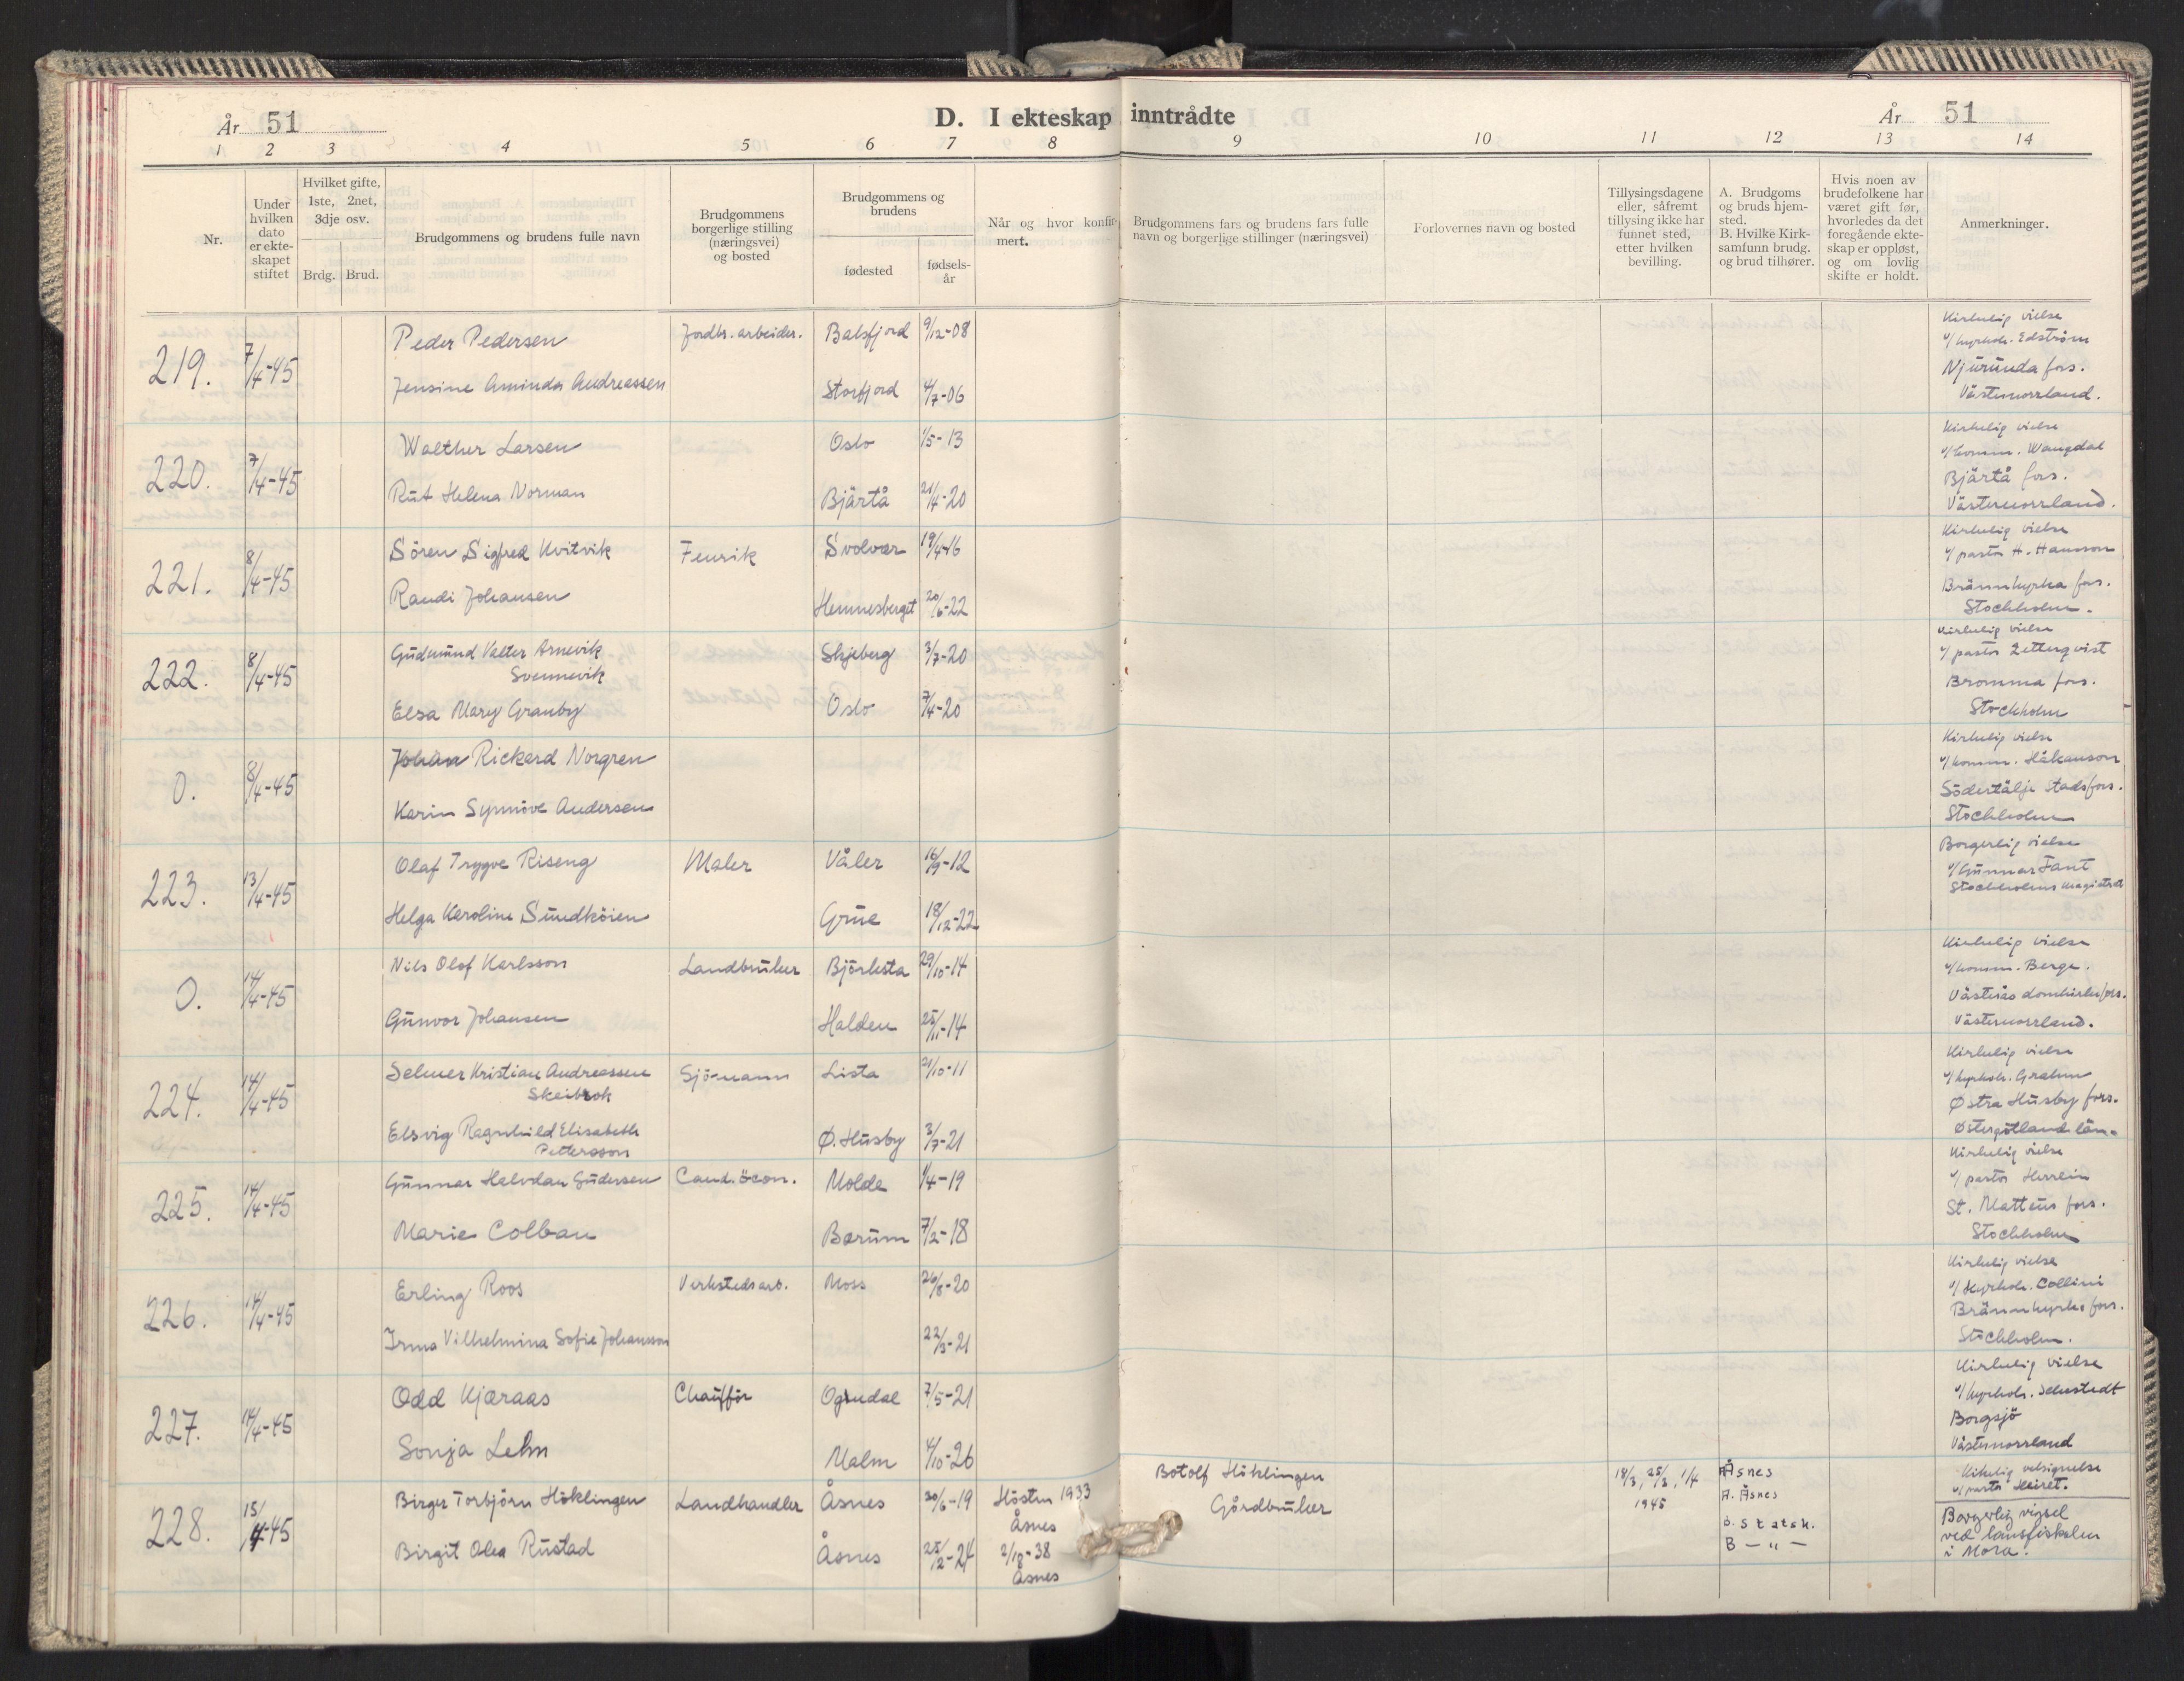 År 51
D. I ekteskap inntrådte
År 51
1 2 3 4 5 6 7 8 9 10 11 12 13 14
Nr.
Under hvilken dato er ekteskapet stiftet
Hvilket gifte, 1ste, 2net, 3dje osv.
Brdg. Brud.
Brudgommens og brudens fulle navn
Brudgommens borgerlige stilling (næringsvei) og bosted
Brudgommens og brudens
fødested
fødselsår
Når og hvor konfirmert.
Brudgommens fars og brudens fars fulle navn og borgerlige stillinger (næringsvei)
Forlovernes navn og bosted
Tillysingsdagene eller, såfremt tillysing ikke har funnet sted, etter hvilken bevilling.
A. Brudgoms og bruds hjemsted.
B. Hvilke Kirksamfunn brudg. og brud tilhører.
Hvis noen av brudefolkene har været gift før, hvorledes da det foregående ekteskap er oppløst, og om lovlig skifte er holdt.
Anmerkninger.
219. 7/4-45 Peder Pedersen Jordbr. arbeider. Balsfjord 9/12-08
Jensine Aminda Andreassen Storfjord 4/7-06
Kirkelig vielse
v/ kyrkoh. Edström
Njurunda fors.
Västernorrland.
220. 7/4-45 Walther Larsen Oslo 1/5-13
Rut Helena Norman Bjärtå 21/4-20
Kirkelig vielse
v/ komm. Wangdal
Bjärtå fors.
Västernorrland.
221. 8/4-45 Sören Sigfred Kvitvik Fenrik Svolvær 19/4-16
Randi Johansen Hemnesberget 20/6-22
Kirkelig vielse
v/ pastor H. Hansson
Brännkyrka fors.
Stockholm.
222. 8/4-45 Gudmund Valter Arnevik Svennevik Skjeberg 3/7-20
Elsa Mary Granby Oslo 7/4-20
Kirkelig vielse
v/ pastor Zetterqvist
Bromma fors.
Stockholm
0. 8/4-45 Johan Rickard Norgren
Karin Synnöve Andersen
Kirkelig vielse
v/ komm. Håkanson
Södertälje Stadsfors.
Stockholm
223. 13/4-45 Olaf Trygve Riseng Maler Våler 16/9-12
Helga Karoline Sundköien Grue 18/12-22
Borgerlig vielse
v/ Gunnar Fant
Stockholms magistrat
0. 14/4-45 Nils Olof Karlsson Landbruker Björksta 29/10-14
Gunvor Johansen Halden 25/11-14
Kirkelig vielse
v/ komm. Berge.
Västerås domkirkefors.
Västernorrland.
224. 14/4-45 Selmer Kristian Andreassen Skeibrok Sjö-mann Lista 21/10-11
Elsvig Ragnhild Elisabeth Pettersson Ø. Husby 3/7-21
Kirkelig vielse
v/ kyrkoh. Grahm
Østra Husby fors.
Östergötlands län.
225. 14/4-45 Gunnar Halvdan Gudersen Cand. öcon. Molde 1/4-19
Marie Colban Bærum 7/2-18
Kirkelig vielse
v/ pastor Herrlin
St. Matteus fors.
Stockholm
226. 14/4-45 Erling Roos Verkstedsarb. Moss 26/8-20
Irma Vilhelmina Sofie Johansson 22/3-21
Kirkelig vielse
v/ Kyrkoh. Collini
Brännkyrka fors.
Stockholm.
227. 14/4-45 Odd Kjæraas Chauffør Ogndal 7/5-21
Sonja Lehn Malm 4/10-26
Kirkelig vielse
v/ kyrkoh. Sehlstedt
Borgsjö
Västernorrland
228. 15/4-45 Birger Torbjörn Höklingen Landhandler Åsnes 30/6-19 Hösten 1933 Åsnes
Birgit Olea Rustad Åsnes 25/2-24 2/10-38 Åsnes
Botolf Höklingen
Gårdbruker
18/3, 25/3, 1/4
1945
Åsnes
A. Åsnes
B. Statsk.
B — " —
Kirkelig velsignelse
v/ pastor
Borgerlig vigsel
ved lansfiskalen
i Mora.